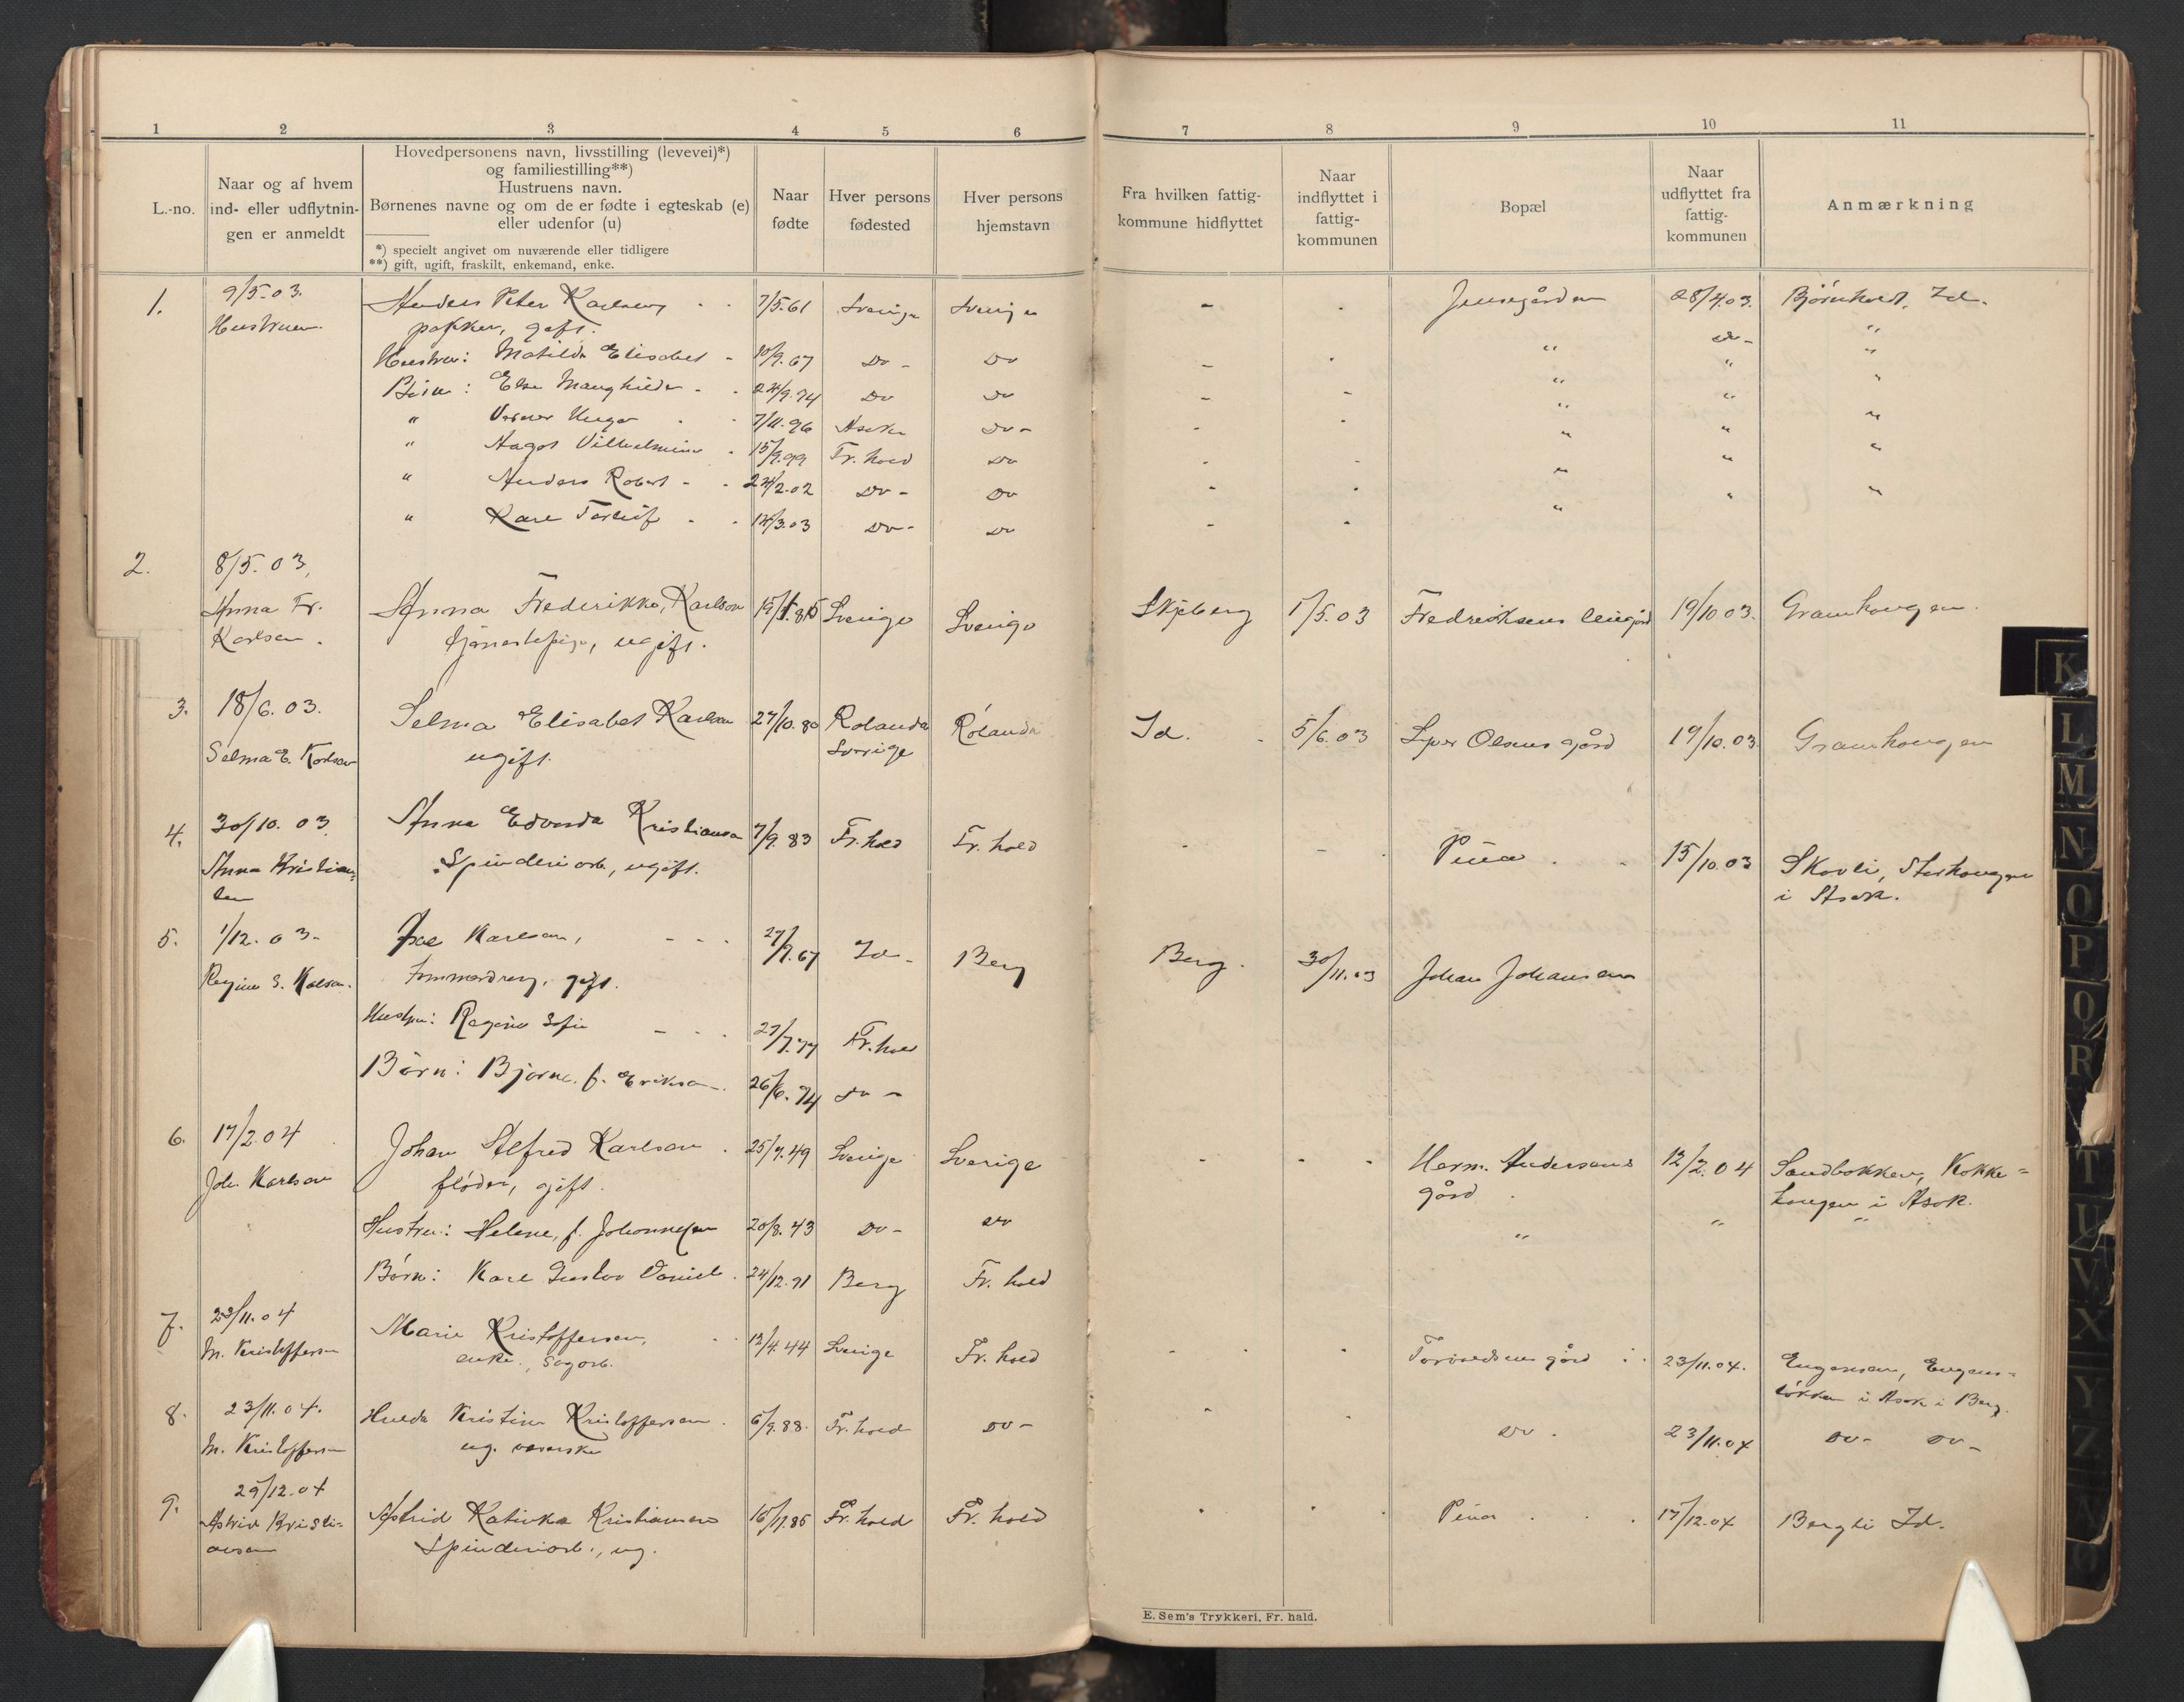 1 2 3 4 5 6 7 8 9 10 11
L.-no.
Naar og af hvem
ind- eller udflytnin-
gen er anmeldt
Hovedpersonens navn, livsstilling (levevei)*)
og familiestilling**)
Hustruens navn.
Børnenes navne og om de er fødte i egteskab (e)
eller udenfor (u)
*) specielt angivet om nuværende eller tidligere
**) gift, ugift, fraskilt, enkemand, enke.
Naar
fødte
Hver persons
fødested
Hver persons
hjemstavn
Fra hvilken fattig-
kommune hidflyttet
Naar
indflyttet i
fattig-
kommunen
Bopæl
Naar
udflyttet fra
fattig-
kommunen
Anmærkning
1. 9/5.03. Anders Peter Karlsen 7/5.61 Sverige Sverige - - Jensegården 28/4.03. Bjørnholt, Id.
Hustruen. pakker, gift.
Hustru: Matilde Elisabet - 10/9.67 Do - Do - - " Do - "
Børn: Else Manghilde - 24/9.94 Do Do - - " " "
" Verner Hugo 7/11.96 Asak Do - - - " " "
" Aagot Vilhelmine 15/9.99 Fr.hald Do - - " " "
" Anders Robert - 24/2.02 Do - Do - - " " "
" Karl Torleif 14/3.03 Do - Do - - " " "
2. 8/5.03,
Anna Fr. Anna Frederikke, Karlson Sverige Sverige Skjeberg 1/5.03 Fredriksens 19/10 03. Gramhaugen.
Karlsen. tjenestepige, ugift.
3. 18/6.03. Selma Elisabet Karlson 27/10.80 Rolanda Rolanda Id. 5/6.03 Iver Olsens gård 19/10.03. Gramhaugen
Selma E. Karlson ugift. Sverige
4. 30/10.03. Anna Edvarda Kristiansen 7/9.83 Fr.hald Fr. hald - - 15/10.03 Skovli, Storhaugen
Anna Kristian- Spinderiarb., ugift. i Asak.
sen
5. 1/12.03. Karlsen, 27/9.67 Id - Berg Berg. 30/11.03 Johan Johansens
Regine S. Karlsen. gift.
Hustru: Regine Sofie 27/7.77 Fr.hald
Børn: Bjarne f. Eriksen. 26/6.94 Do -
6. 17/2.04 Johan Alfred Karlson 25/9.49 Sverige Sverige - - Herm. Andersens 12/2.04 Sandbakken, Kokke-
Joh. Karlson fløder, gift. gård haugen i Asak.
Hustru: Helene, f. Johannesen 20/8.43 Do - Do " " "
Børn: Karl Gustav Daniel 24/12.91 Berg Fr. hald
7. 23/11.04 Marie Kristoffersen, 12/4.44 Sverige Fr. hald - - gård 23/11.04. Engens-
M. Kristoffersen enke, Sagarb. løkken i Asak i Berg.
8. 23/11.04. Hulda Kristine Kristoffersen 6/9.88. Fr.hald Do - - - Do. 23/11.04 Do - Do -
M. Kristoffersen ug. væverske
9. 29/12.04 Astrid Katinka Kristiansen Fr.hald Fr.hald - - 17/12.04 Bergli Id.
Astrid Kristi- Spinderiarb., ug.
ansen
E. Sem's Trykkeri, Fr. hald.
K
L
M
N
O
P
Q
R
T
U
V
X
Y
Z